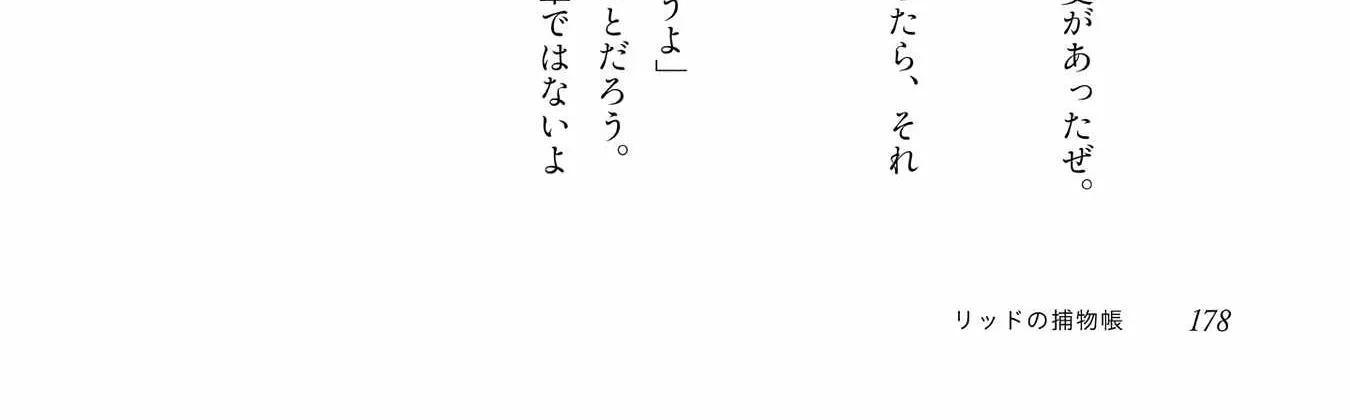 があったぜ。
たら、それ
うよ」
とだろう。
ではないよ
リッドの捕物帳
178